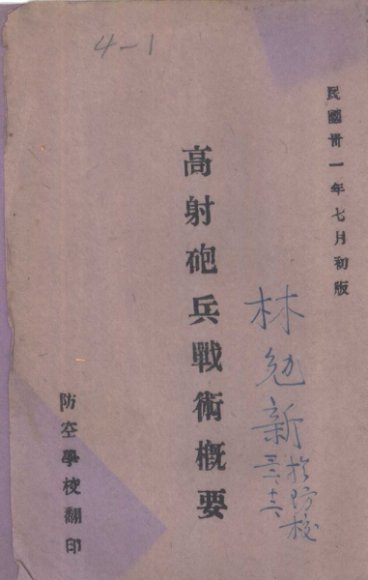 4-1
民國卅一年七月初版
高射砲兵戰術概要
林勉新
於防校
防空學校翻印